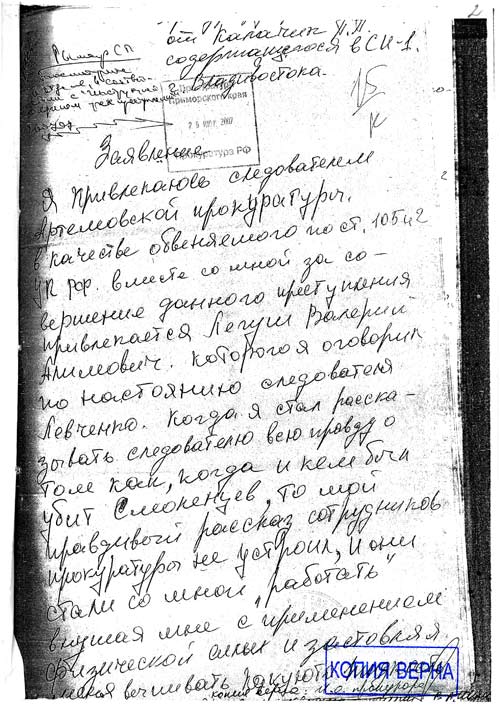 2
от Калачик И.И.
содержащегося в СИ-1.
г. Владивостока.
Рымар СП
15
Приморского края
25 ИЮЛ 2007
Прокуратура РФ
Заявление
Я привлекаюсь следователем
Артемовской прокуратуры.
в качестве обвеняемого по ст. 105 ч2
УК РФ. вместе со мной за со-
вершение данного преступления
привлекается Легуш Валерий
Алимович. которого я оговорил
по настоянию следователя
Левченко. Когда я стал расска-
зывать следователю всю правду о
том как, когда и кем был
убит Смоленцев, то мой
правдивый рассказ сотрудников
прокуратуры не устроил, и они
стали со мной "работать"
внушая мне с применением
физической силы и заставляя
меня
КОПИЯ ВЕРНА